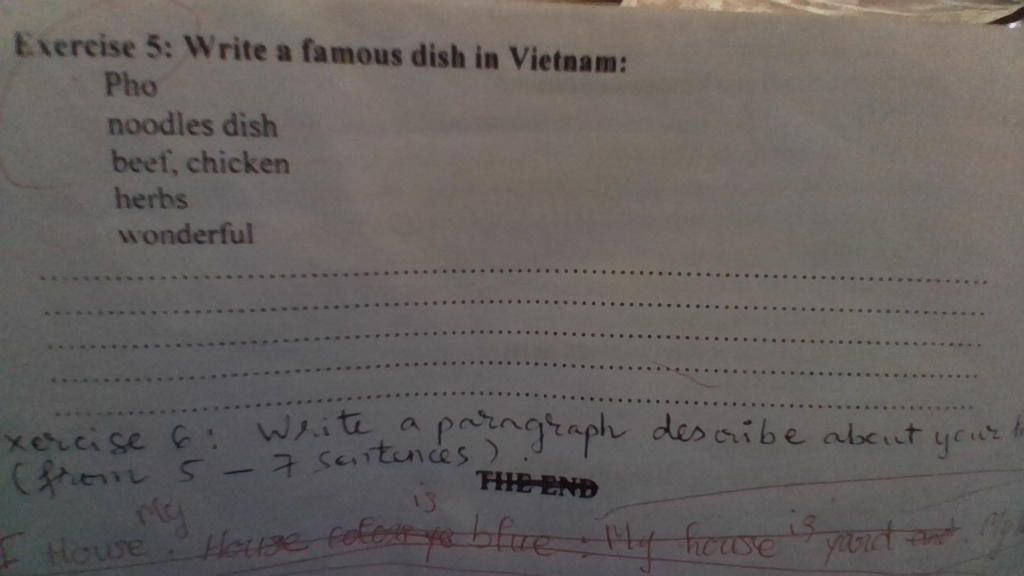 Exercise 5: Write a famous dish in Vietnam:
Pho
noodles dish
beef, chicken
herbs
wonderful
xercise 6: Write a paragraph describe about your
(from 5 - 7 sentences).
THE END
My is
I House. House blue. My house is yard and. My